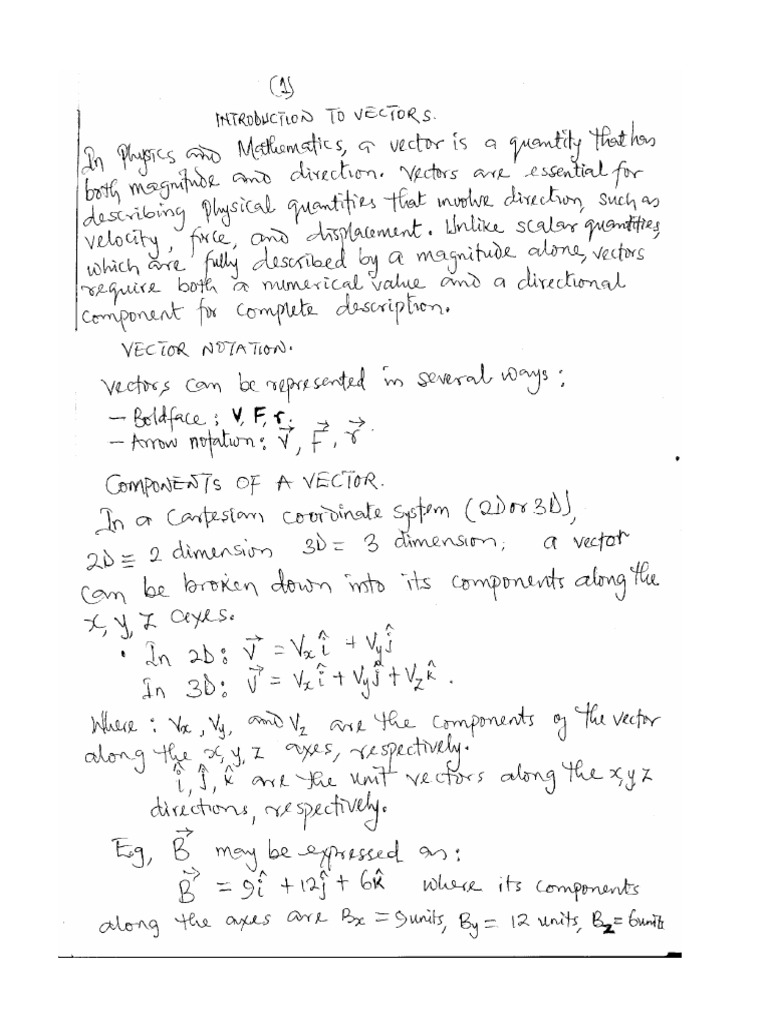 (1)
INTRODUCTION TO VECTORS.
In Physics and Mathematics, a vector is a quantity that has
both magnitude and direction. Vectors are essential for
describing physical quantities that involve direction, such as
velocity, force, and displacement. Unlike scalar quantities,
which are fully described by a magnitude alone, vectors
require both a numerical value and a directional
component for complete description.
VECTOR NOTATION.
Vectors can be represented in several ways:
- Boldface: V, F, r.
- Arrow notation: V⃗, F⃗, r⃗.
COMPONENTS OF A VECTOR.
In a Cartesian coordinate system (2D or 3D),
2D ≡ 2 dimension 3D = 3 dimension, a vector
can be broken down into its components along the
x, y, z axes.
• In 2D: V⃗ = Vxî + Vyĵ
In 3D: V⃗ = Vxî + Vyĵ + Vzk̂.
Where: Vx, Vy, and Vz are the components of the vector
along the x, y, z axes, respectively.
î, ĵ, k̂ are the unit vectors along the x, y z
directions, respectively.
Eg, B⃗ may be expressed as:
B⃗ = 9î + 12ĵ + 6k̂ where its components
along the axes are Bx = 9units, By = 12 units, Bz = 6units